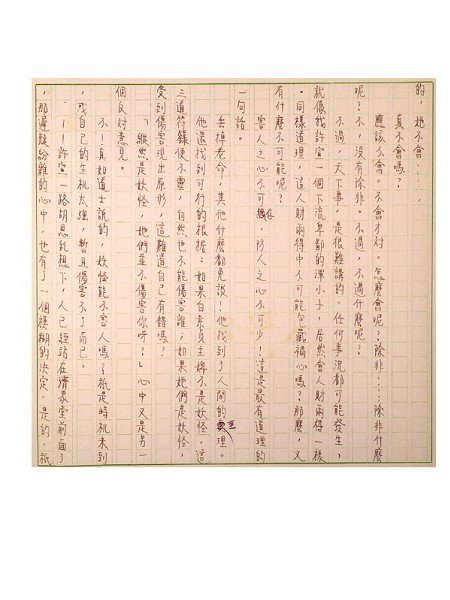 的，她不會……
真不會嗎？
應該不會。不會才對。怎麼會呢？除非……除非什麼
呢？不，沒有除非。不過，不過什麼呢？
不過，天下事，是很難講的。任何事況都可能發生，
就像我許宣一個下流卑鄙的渾小子，居然會人財兩得一樣
。同樣道理，這人財兩得中不可能包藏禍心嗎？那麼，又
有什麼不可能呢？
害人之心不可存，防人之心不可少！這是最有道理的
一句話。
丟掉老命，其他什麼都免談！他找到了人間的至理。
他還找到可行的根據：如果白素貞主婢不是妖怪，這
三道符籙便不靈，自然也不能傷害誰；如果她們是妖怪，
受到傷害現出原形，這難道自己有錯嗎？
「縱然是妖怪，她們並不傷害你呀？」心中又是另一
個反對意見。
不！真如道士說的，妖怪能不害人嗎？祇是時机未到
，或自己的生机太強，暫且傷害不了而已。
．！！許宣一路胡思乱想下，人已經站在濟眾堂前面了
，那遲疑紛雜的心中，也有了一個模糊的決定。是的，祇